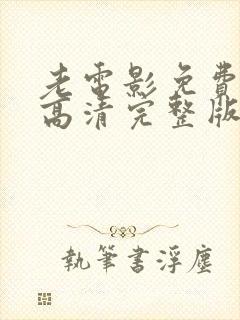 老電影免費
高清完整版
執筆書浮塵